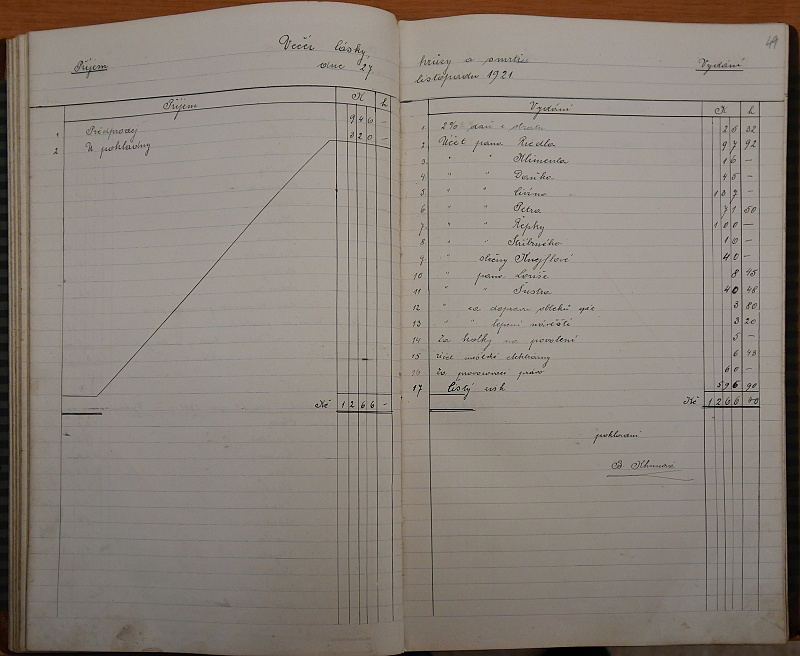 49
Večer lásky,
Příjem
dne 27
Příjem K h
1 Předprodej 946 –
2 U pokladny 320 –
Kč 1266 –
hrůzy a smrti
listopadu 1921.
Vydání
Vydání K h
1 2% daň z obratu 25 32
2 Účet pana Riedla 97 92
3 " " Klimenta 16 –
4 " " 45 –
5 " " 137 –
6 " " Petra 71 50
7 " " Řepky 100 –
8 " " Stříbrného 10 –
9 " slečny 40 –
10 " pana 8 45
11 " " Šustra 40 48
12 " za dopravu obleků 3 80
13 " " lepení návěští 3 20
14 Za kolky na povolení 5 –
15 Účet 6 43
16 Za provozovací právo 60 –
17 Čistý zisk 596 90
Kč 1266 40
pokladní
B.